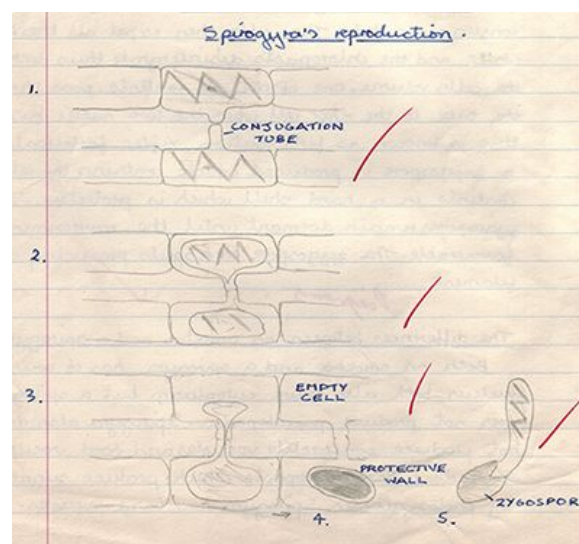 Spirogyra's reproduction.
1.
CONJUGATION
TUBE
2.
3.
EMPTY
CELL
PROTECTIVE
WALL
4.
5.
ZYGOSPOR